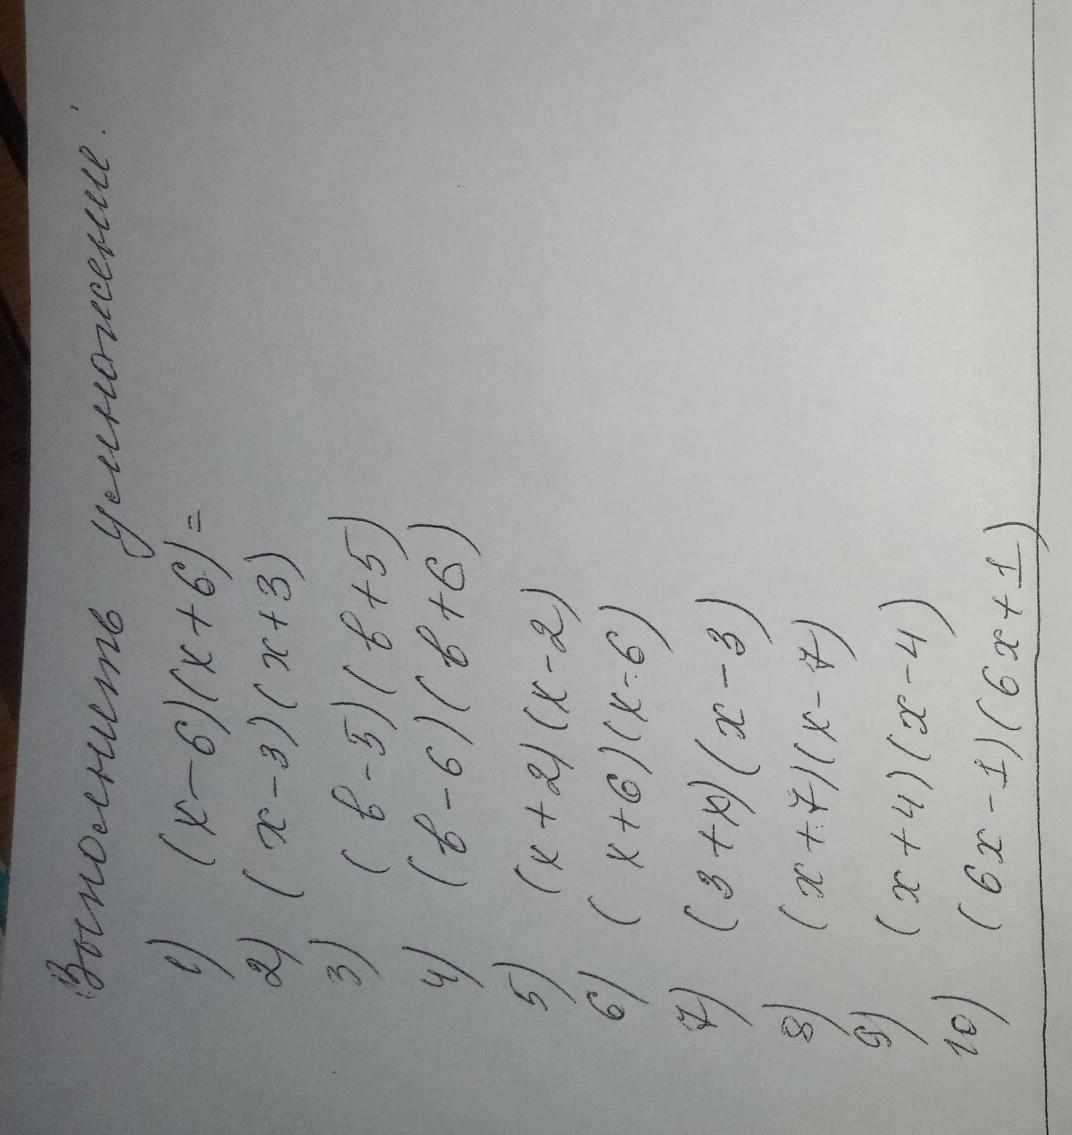 Выполнить умножение:
1) (x-6)(x+6)=
2) (x-3)(x+3)
3) (b-5)(b+5)
4) (b-6)(b+6)
5) (x+2)(x-2)
6) (x+6)(x-6)
7) (3+x)(x-3)
8) (x+7)(x-7)
9) (x+4)(x-4)
10) (6x-1)(6x+1)